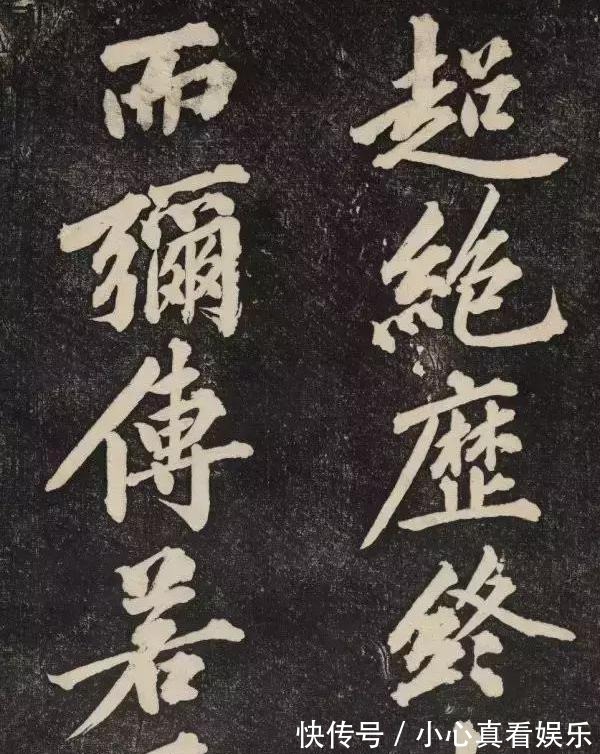 超絶歷終
而彌傳若
快传号 / 小心真看娱乐